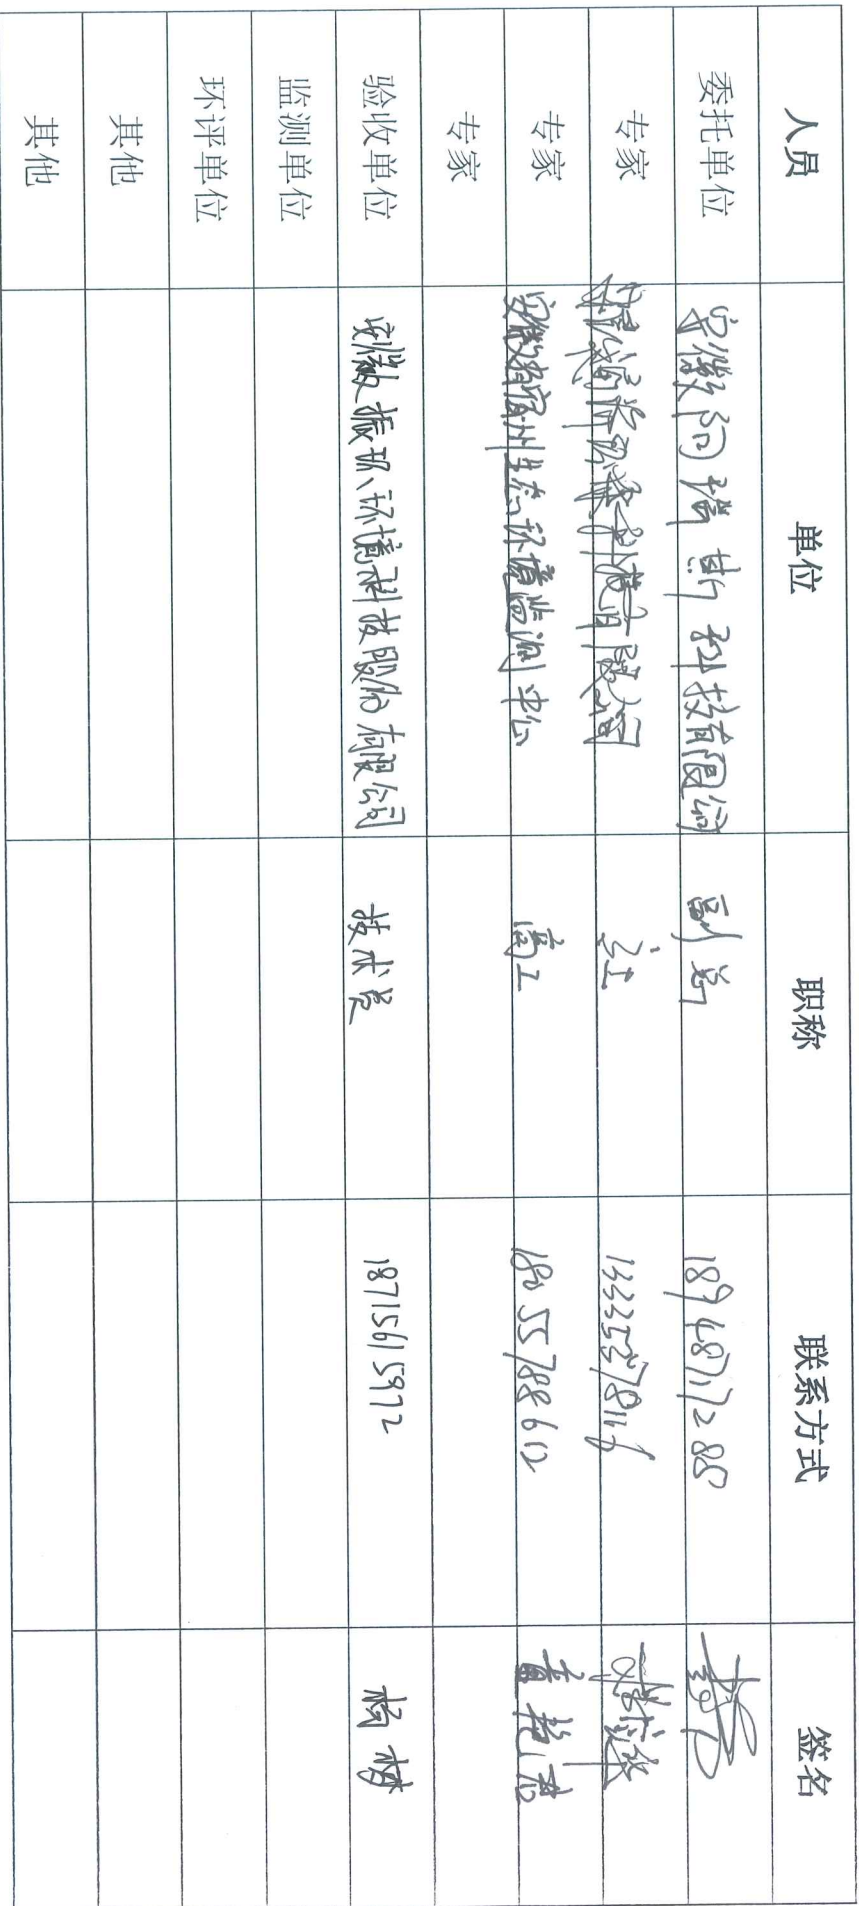 人员 单位 职称 联系方式 签名
委托单位 安徽 斯科技有限公司 副总 18948717285
专家 有限公司
专家 安徽省宿州生态环境监测中心 高工 18055788612
专家
验收单位 安徽振环环境科技股份有限公司 技术员 18715615972 杨梦
监测单位
环评单位
其他
其他